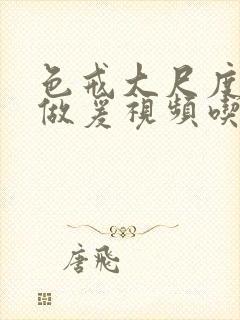 色戒大尺度
做爰視頻喫
唐飛